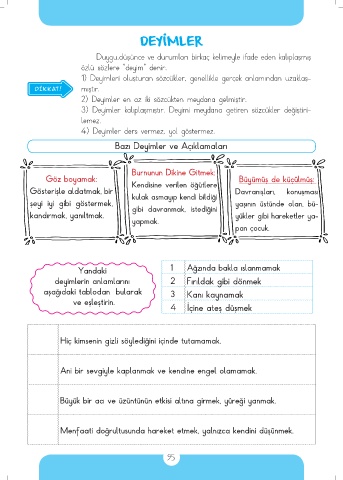 DEYİMLER
Duygu,düşünce ve durumları birkaç kelimeyle ifade eden kalıplaşmış
özlü sözlere "deyim" denir.
1) Deyimleri oluşturan sözcükler, genellikle gerçek anlamından uzaklaş-
DİKKAT!
mıştır.
2) Deyimler en az iki sözcükten meydana gelmiştir.
3) Deyimler kalıplaşmıştır. Deyimi meydana getiren sözcükler değiştiri-
lemez.
4) Deyimler ders vermez, yol göstermez.
Bazı Deyimler ve Açıklamaları
Göz boyamak:
Gösterişle aldatmak, bir
şeyi iyi gibi göstermek,
kandırmak, yanıltmak.
Burnunun Dikine Gitmek:
Kendisine verilen öğütlere
kulak asmayıp kendi bildiği
gibi davranmak, istediğini
yapmak.
Büyümüş de küçülmüş:
Davranışları, konuşması
yaşının üstünde olan, bü-
yükler gibi hareketler ya-
pan çocuk.
Yandaki
deyimlerin anlamlarını
aşağıdaki tablodan bularak
ve eşleştirin.
1 Ağzında bakla ıslanmamak
2 Fırıldak gibi dönmek
3 Kanı kaynamak
4 İçine ateş düşmek
Hiç kimsenin gizli söylediğini içinde tutamamak.
Ani bir sevgiyle kaplanmak ve kendine engel olamamak.
Büyük bir acı ve üzüntünün etkisi altına girmek, yüreği yanmak.
Menfaati doğrultusunda hareket etmek, yalnızca kendini düşünmek.
95